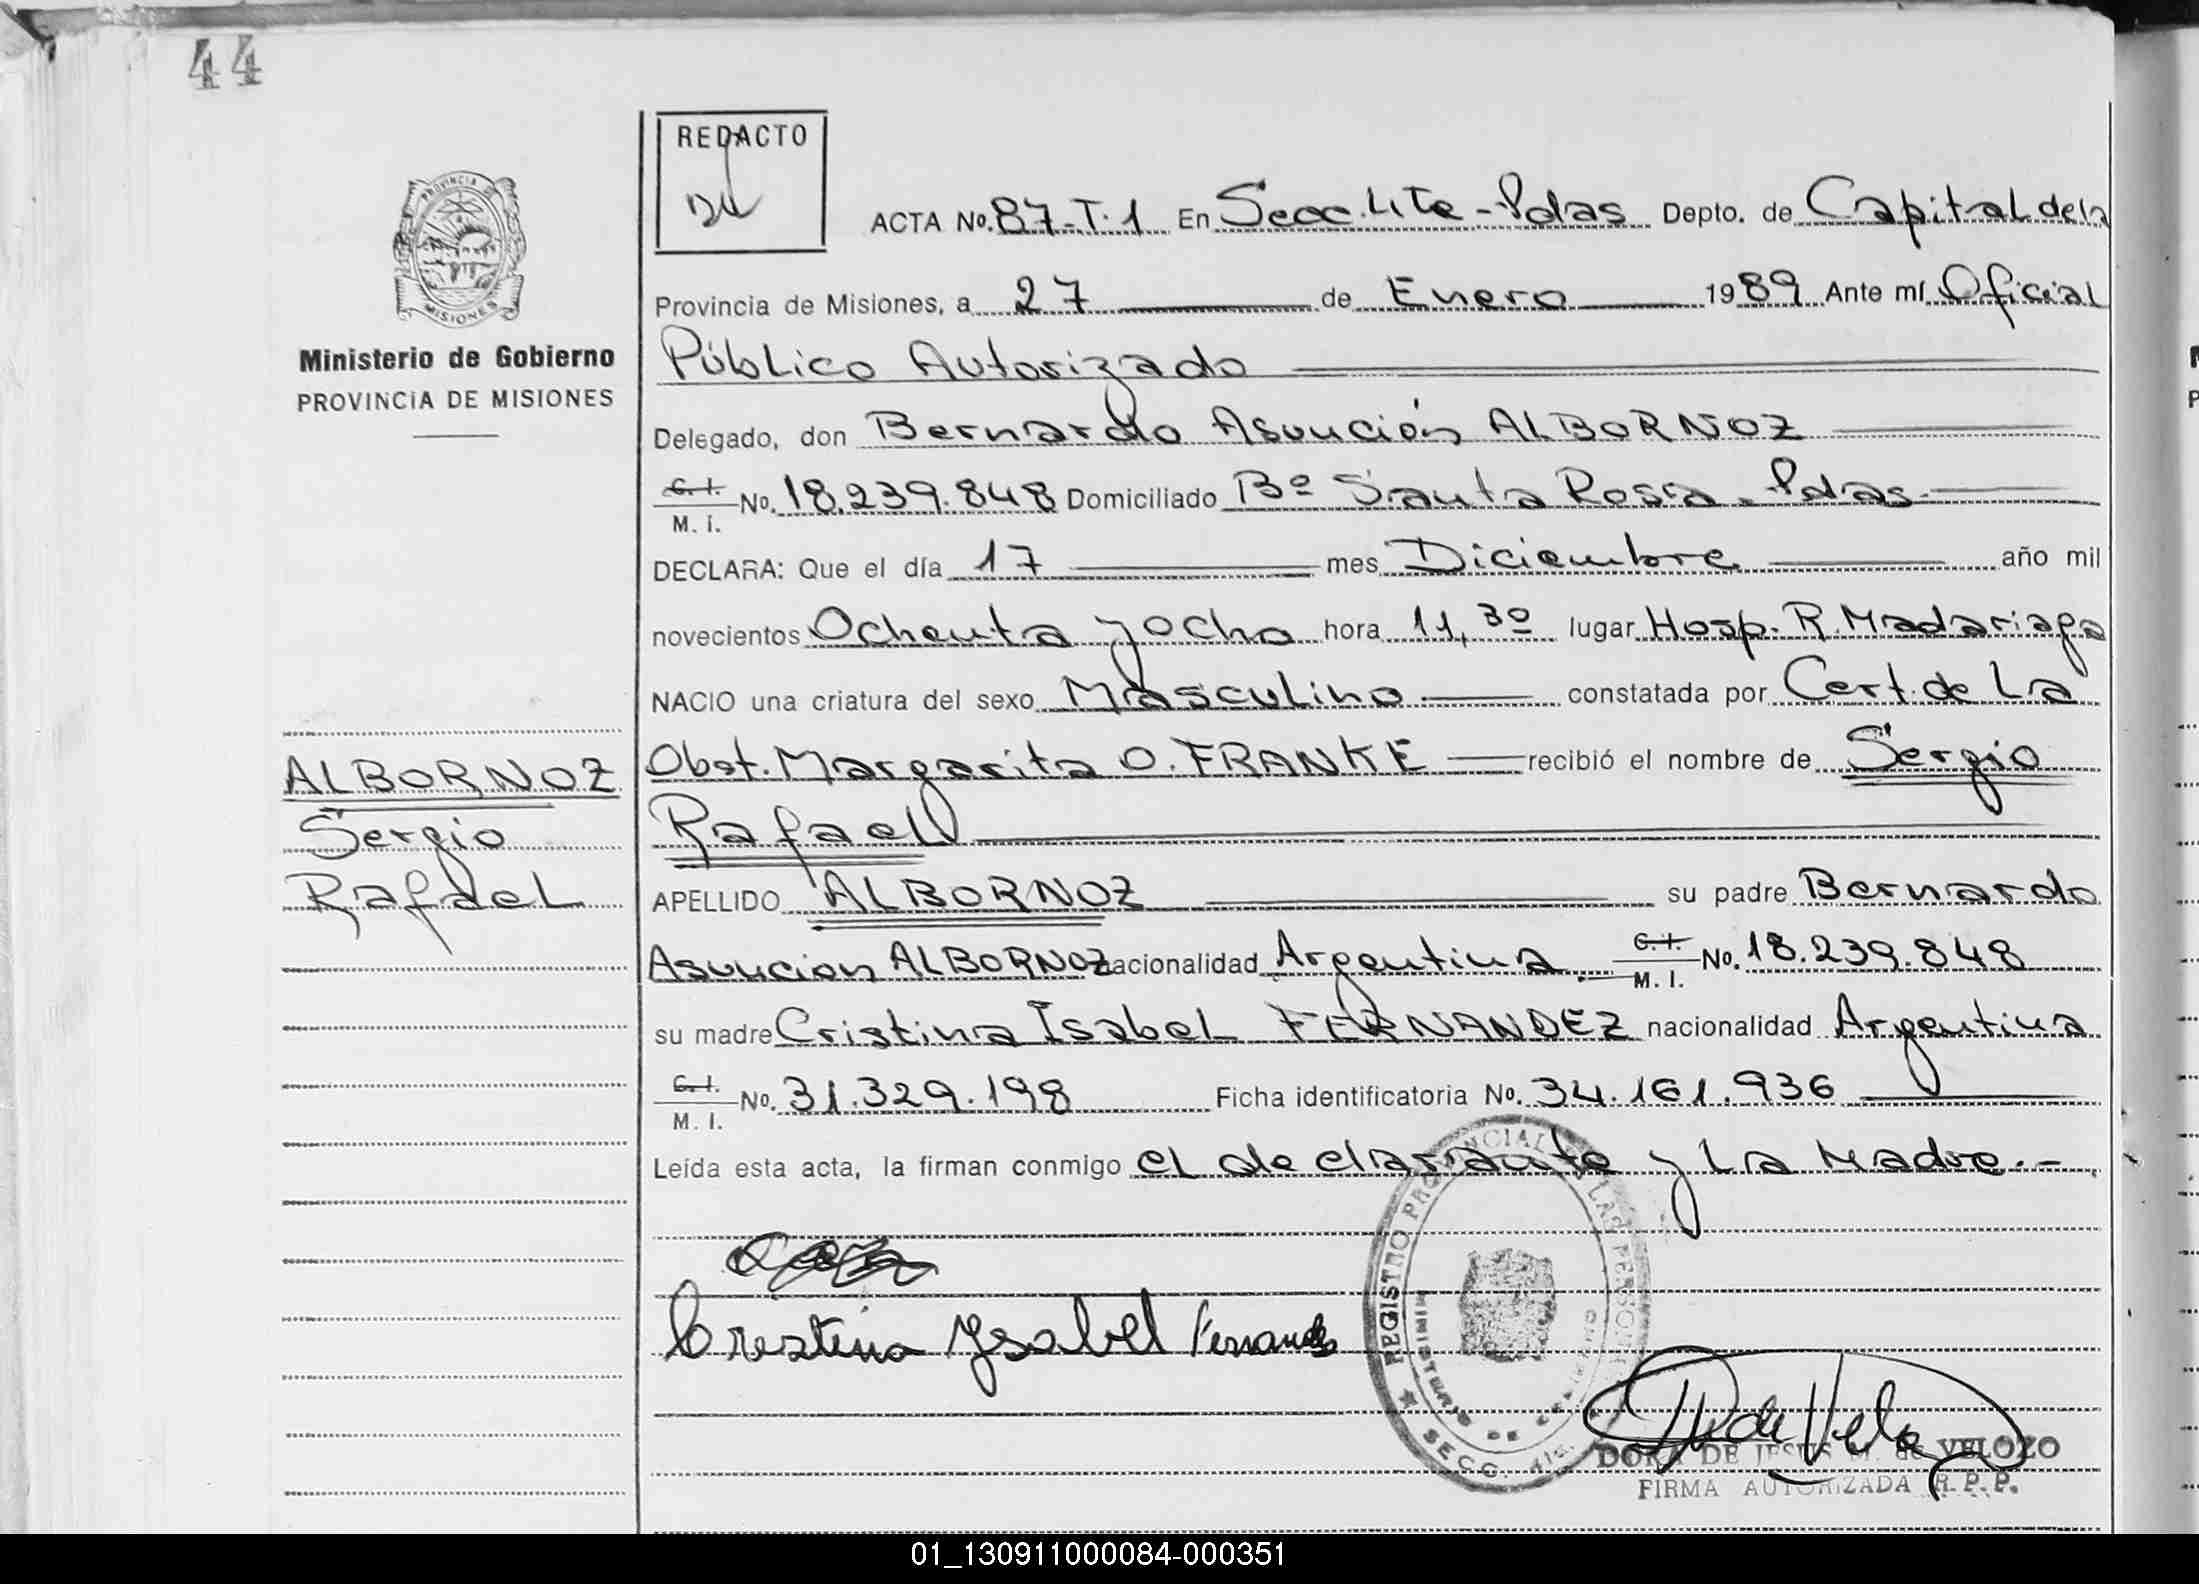 44
REDACTO
ACTA No. 87-T.1 En Secc. 4ta - Pdas Depto. de Capital de la
Provincia de Misiones, a 27 de Enero 1989 Ante mí Oficial
Público Autorizado
Delegado, don Bernardo Asunción ALBORNOZ
C. I. / M. I. No. 18.239.848 Domiciliado Bº Santa Rosa - Pdas
DECLARA: Que el día 17 mes Diciembre año mil
novecientos Ochenta y Ocho hora 11,30 lugar Hosp. R. Madariaga
NACIO una criatura del sexo Masculino constatada por Cert. de La
Obst. Margarita O. FRANKE recibió el nombre de Sergio
Rafael
APELLIDO ALBORNOZ su padre Bernardo
Asuncion ALBORNOZ nacionalidad Argentina C. I. / M. I. No. 18.239.848
su madre Cristina Isabel FERNANDEZ nacionalidad Argentina
C. I. / M. I. No. 31.329.198 Ficha identificatoria No. 34.161.936
Leída esta acta, la firman conmigo el declarante y La Madre.-
Crestina Ysabel Fernandes
PROVINCIA DE
MISIONES
Ministerio de Gobierno
PROVINCIA DE MISIONES
ALBORNOZ
Sergio
Rafael
REGISTRO PROVINCIAL LAS PERSON
MINISTERIO DE
SECC.
DORA DE JESUS M. de VELOZO
FIRMA AUTORIZADA R. P. P.
01_130911000084-000351